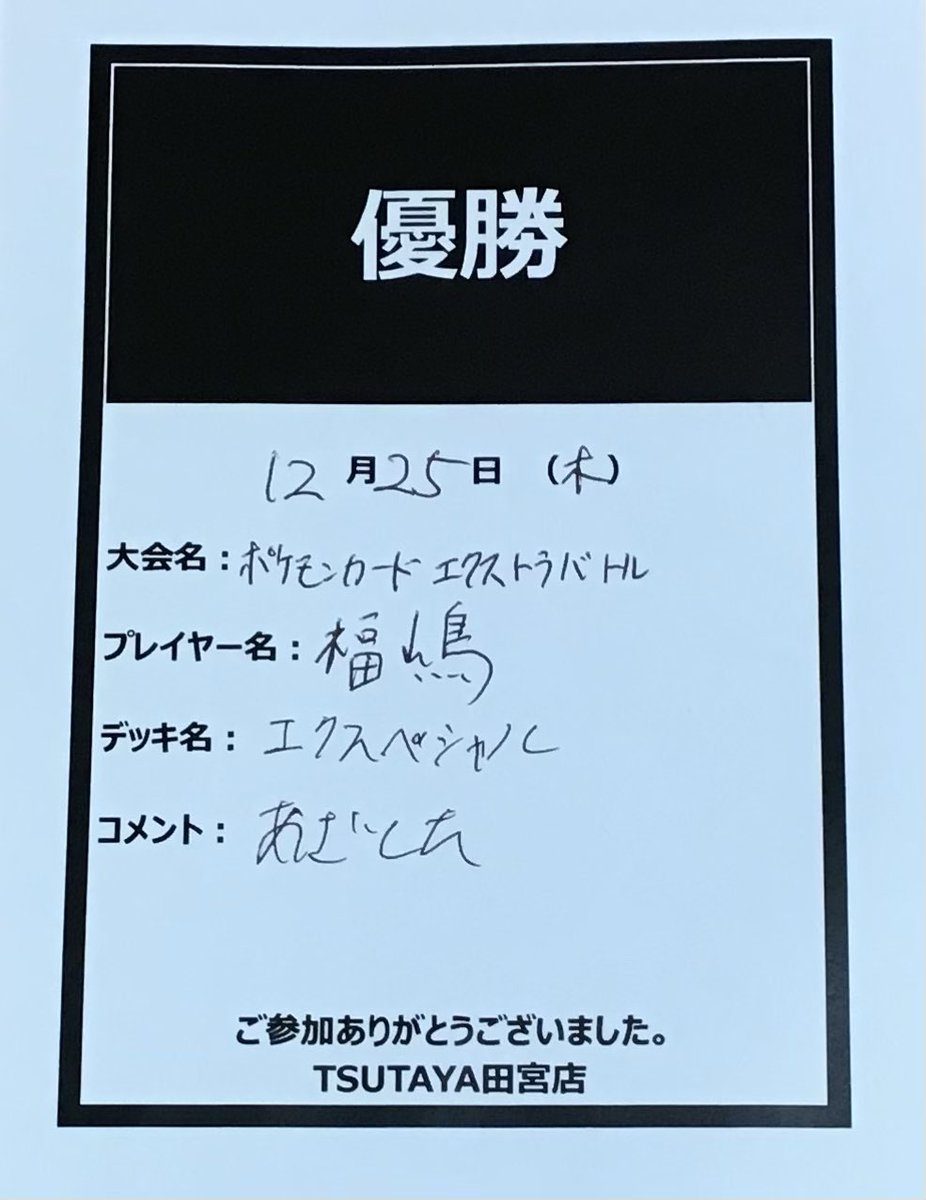 優勝
12月25日（木）
大会名：ポケモンカード エクストラバトル
プレイヤー名：福嶋
デッキ名：エクスペシャル
コメント：あざした
ご参加ありがとうございました。
TSUTAYA田宮店